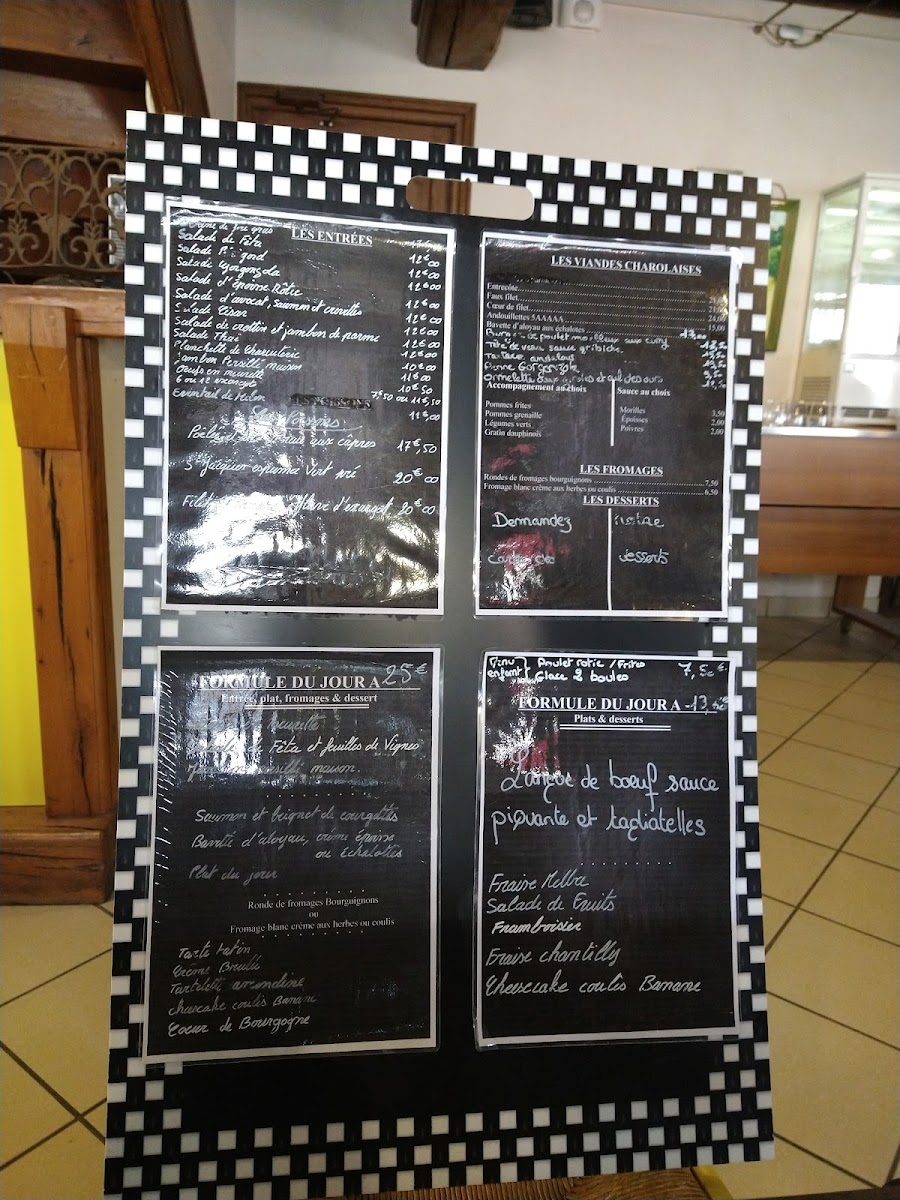 LES ENTRÉES
foie gras
Salade de Fêta 12€00
Salade Périgord 12€00
Salade Gorgonzola 12€00
Salade d'Époisse Rôtie
Salade d'avocat, saumon et crevettes 12€00
Salade César 12€00
Salade de crottin et jambon de parme 12€00
Salade Thaï 12€00
Planchette de Charcuterie
Jambon Persillé maison
Oeufs en meurette
6 ou 12 escargots 7€50 ou 11€50
Eventail de Melon 11€00
LES POISSONS
aux câpres 17€,50
St Jacques espuma vert pré 20€00
Filet d'escargot 20€00
LES VIANDES CHAROLAISES
Entrecôte
Faux filet
Cœur de filet
Andouillettes 5AAAAA
Bavette d'aloyau aux échalotes 15,00
de poulet moelleux au curry
Tête de veau sauce gribiche
Tartare
Pierre Gorgonzola
Accompagnement au choix
Pommes frites
Pommes grenaille
Légumes verts
Gratin dauphinois
Sauce au choix
Morilles 3,50
Époisses 2,00
Poivres 2,00
LES FROMAGES
Rondes de fromages bourguignons 7,50
Fromage blanc crème aux herbes ou coulis 6,50
LES DESSERTS
Demandez notre
carte des desserts
FORMULE DU JOUR A 25€
Entrée, plat, fromages & dessert
meurette
Fêta et feuilles de Vignes
maison
Saumon et beignet de courgettes
Bavette d'aloyau, crème époisse
ou échalottes
Plat du jour
Ronde de fromages Bourguignons
ou
Fromage blanc crème aux herbes ou coulis
Tarte tatin
Crème Brulée
Tartelette
cheesecake coulis Banane
Coeur de Bourgogne
Menu enfant Poulet rotie / Frites 7,50€
Glace 2 boules
FORMULE DU JOUR A - 13,50€
Plats & desserts
Langue de boeuf sauce
piquante et tagliatelles
Fraise Melba
Salade de Fruits
Framboisier
Fraise chantilly
Cheesecake coulis Banane